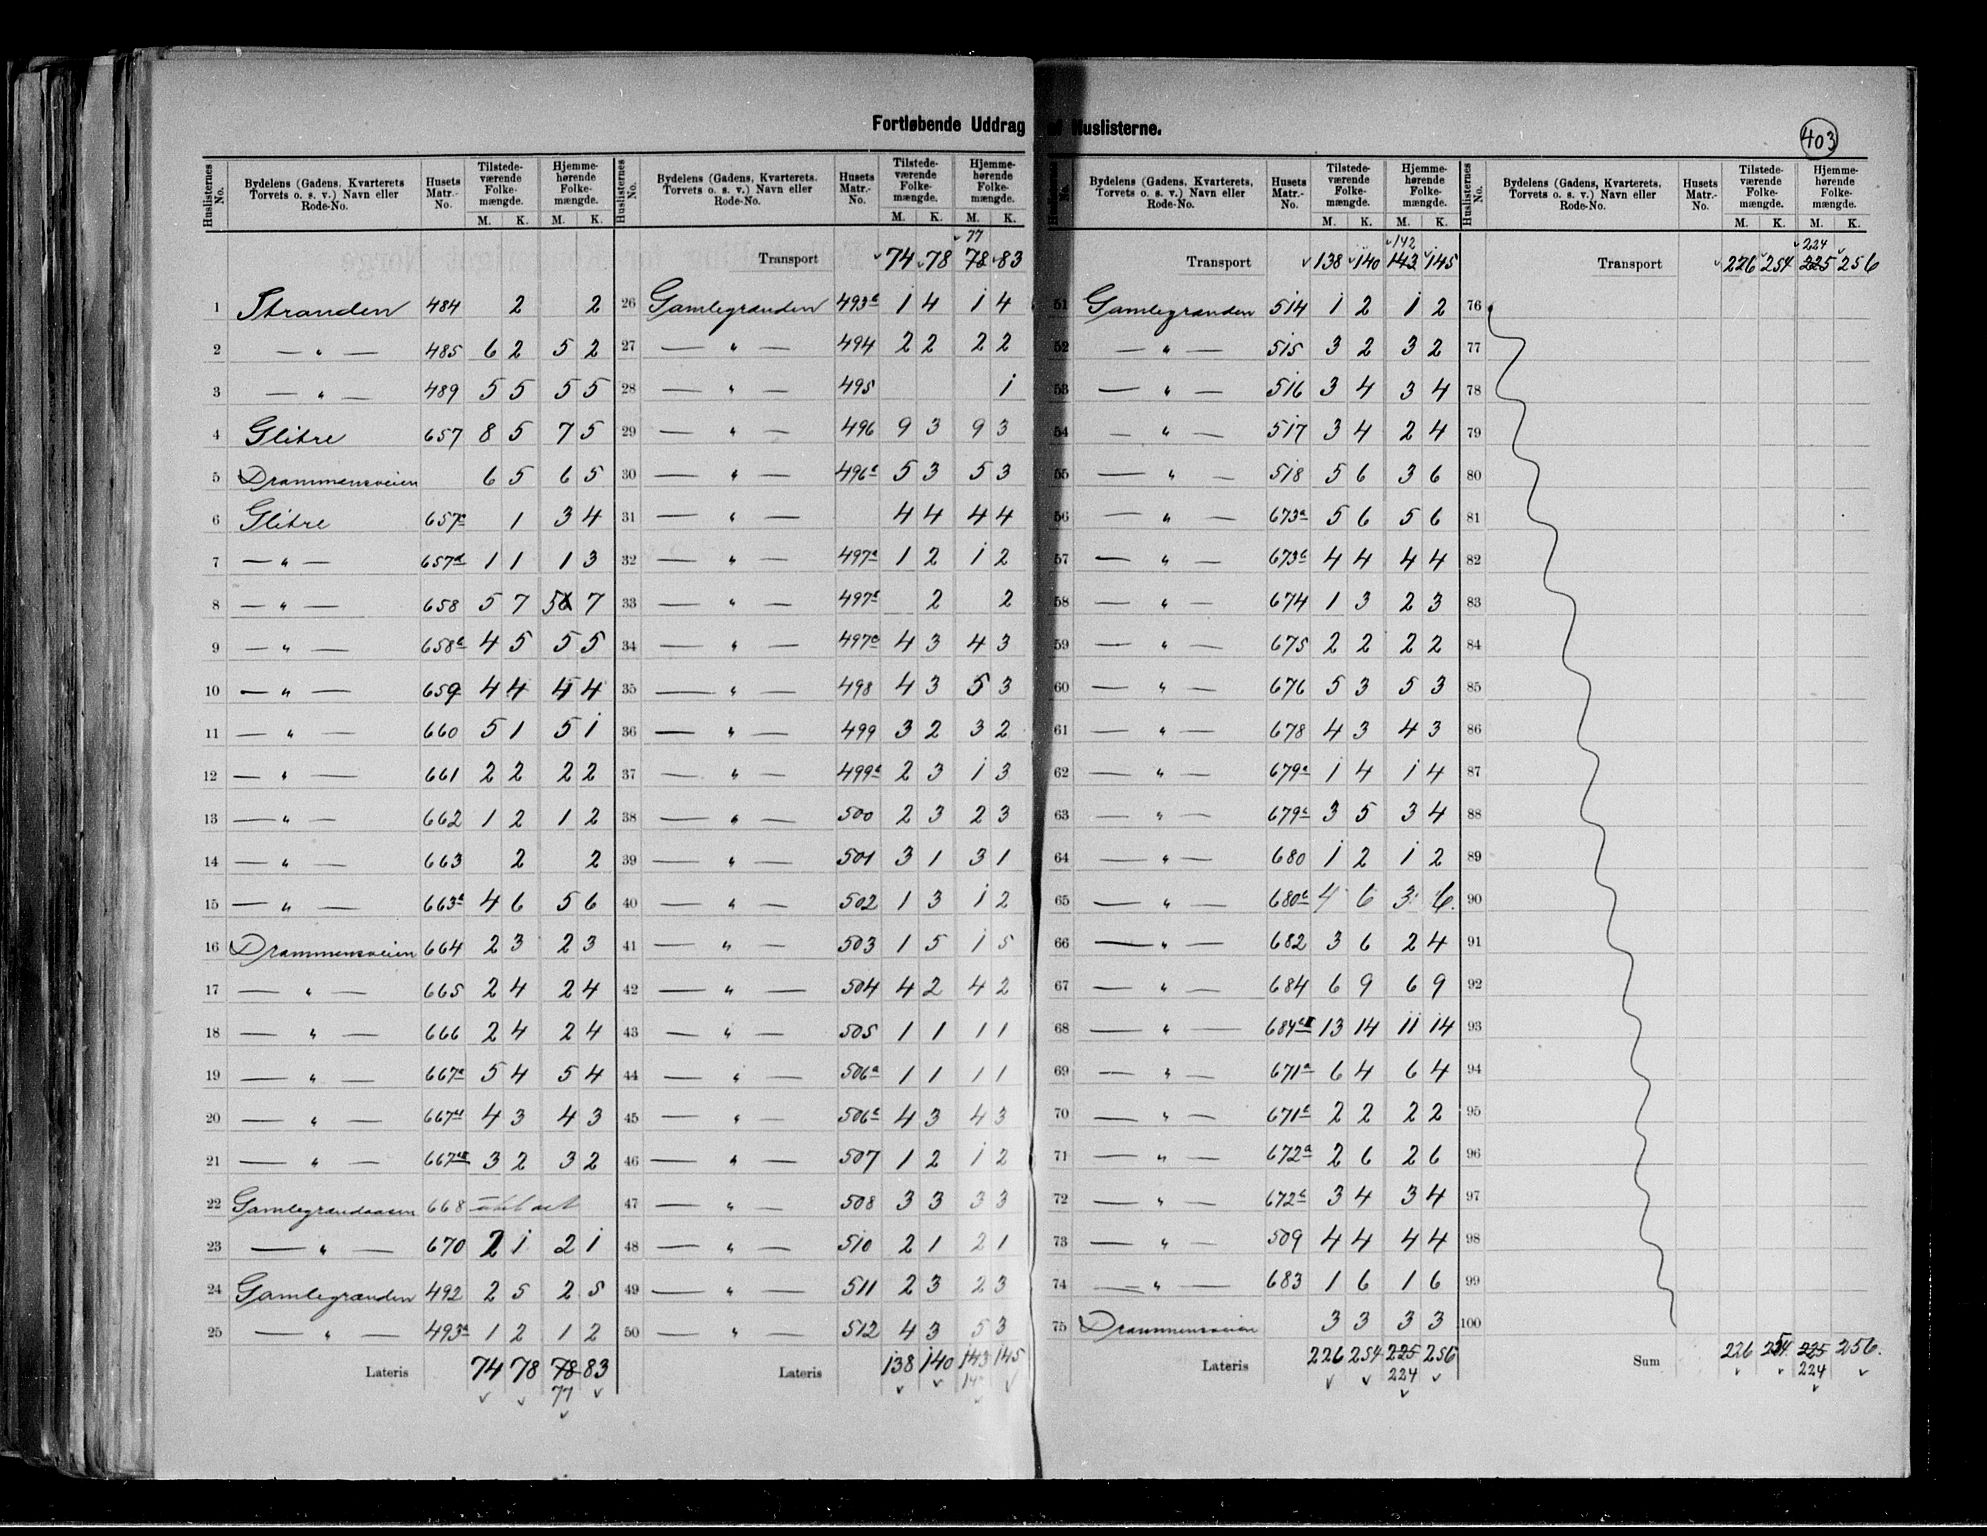 403
Fortløbende Uddrag af Huslisterne.
Huslisternes No. | Bydelens (Gadens, Kvarterets Torvets o. s. v.) Navn eller Rode-No. | Husets Matr.-No. | Tilstedeværende Folkemængde. M. K. | Hjemmehørende Folkemængde. M. K.
1 Stranden 484 2 2
2 — „ — 485 6 2 5 2
3 — „ — 489 5 5 5 5
4 Glitre 657 8 5 7 5
5 Drammensveien 6 5 6 5
6 Glitre 657c 1 3 4
7 — „ — 657d 1 1 1 3
8 — „ — 658 5 7 5 7
9 — „ — 658b 4 5 5 5
10 — „ — 659 4 4 4 4
11 — „ — 660 5 1 5 1
12 — „ — 661 2 2 2 2
13 — „ — 662 1 2 1 2
14 — „ — 663 2 2
15 — „ — 663a 4 6 5 6
16 Drammensveien 664 2 3 2 3
17 — „ — 665 2 4 2 4
18 — „ — 666 2 4 2 4
19 — „ — 667a 5 4 5 4
20 — „ — 667bI 4 3 4 3
21 — „ — 667bII 3 2 3 2
22 Gamlegrændaasen 668
23 — „ — 670 2 1 2 1
24 Gamlegrænden 492 2 5 2 5
25 — „ — 493a 1 2 1 2
Lateris 74 78 78 83
77
Huslisternes No. | Bydelens (Gadens, Kvarterets Torvets o. s. v.) Navn eller Rode-No. | Husets Matr.-No. | Tilstedeværende Folkemængde. M. K. | Hjemmehørende Folkemængde. M. K.
77
Transport 74 78 78 83
26 Gamlegrænden 493b 1 4 1 4
27 — „ — 494 2 2 2 2
28 — „ — 495 1
29 — „ — 496 9 3 9 3
30 — „ — 496b 5 3 5 3
31 — „ — 4 4 4 4
32 — „ — 497a 1 2 1 2
33 — „ — 497b 2 2
34 — „ — 497c 4 3 4 3
35 — „ — 498 4 3 5 3
36 — „ — 499 3 2 3 2
37 — „ — 499b 2 3 1 3
38 — „ — 500 2 3 2 3
39 — „ — 501 3 1 3 1
40 — „ — 502 1 3 1 2
41 — „ — 503 1 5 1 5
42 — „ — 504 4 2 4 2
43 — „ — 505 1 1 1 1
44 — „ — 506a 1 1 1 1
45 — „ — 506b 4 3 4 3
46 — „ — 507 1 2 1 2
47 — „ — 508 3 3 3 3
48 — „ — 510 2 1 2 1
49 — „ — 511 2 3 2 3
50 — „ — 512 4 3 5 3
Lateris 138 140 143 145
Huslisternes No. | Bydelens (Gadens, Kvarterets, Torvets o. s. v.) Navn eller Rode-No. | Husets Matr.-No. | Tilstedeværende Folkemængde. M. K. | Hjemmehørende Folkemængde. M. K.
142
Transport 138 140 143 145
51 Gamlegrænden 514 1 2 1 2
52 — „ — 515 3 2 3 2
53 — „ — 516 3 4 3 4
54 — „ — 517 3 4 2 4
55 — „ — 518 5 6 3 6
56 — „ — 673a 5 6 5 6
57 — „ — 673b 4 4 4 4
58 — „ — 674 1 3 2 3
59 — „ — 675 2 2 2 2
60 — „ — 676 5 3 5 3
61 — „ — 678 4 3 4 3
62 — „ — 679a 1 4 1 4
63 — „ — 679b 3 5 3 4
64 — „ — 680 1 2 1 2
65 — „ — 680b 4 6 3 6
66 — „ — 682 3 6 2 4
67 — „ — 684 6 9 6 9
68 — „ — 684bII 13 14 11 14
69 — „ — 671a 6 4 6 4
70 — „ — 671b 2 2 2 2
71 — „ — 672a 2 6 2 6
72 — „ — 672b 3 4 3 4
73 — „ — 509 4 4 4 4
74 — „ — 683 1 6 1 6
75 Drammensveien 3 3 3 3
Lateris 226 254 225 256
224
Huslisternes No. | Bydelens (Gadens, Kvarterets, Torvets o. s. v.) Navn eller Rode-No. | Husets Matr.-No. | Tilstedeværende Folkemængde. M. K. | Hjemmehørende Folkemængde. M. K.
224
Transport 226 254 225 256
76
77
78
79
80
81
82
83
84
85
86
87
88
89
90
91
92
93
94
95
96
97
98
99
100
Sum 226 254 225 256.
224